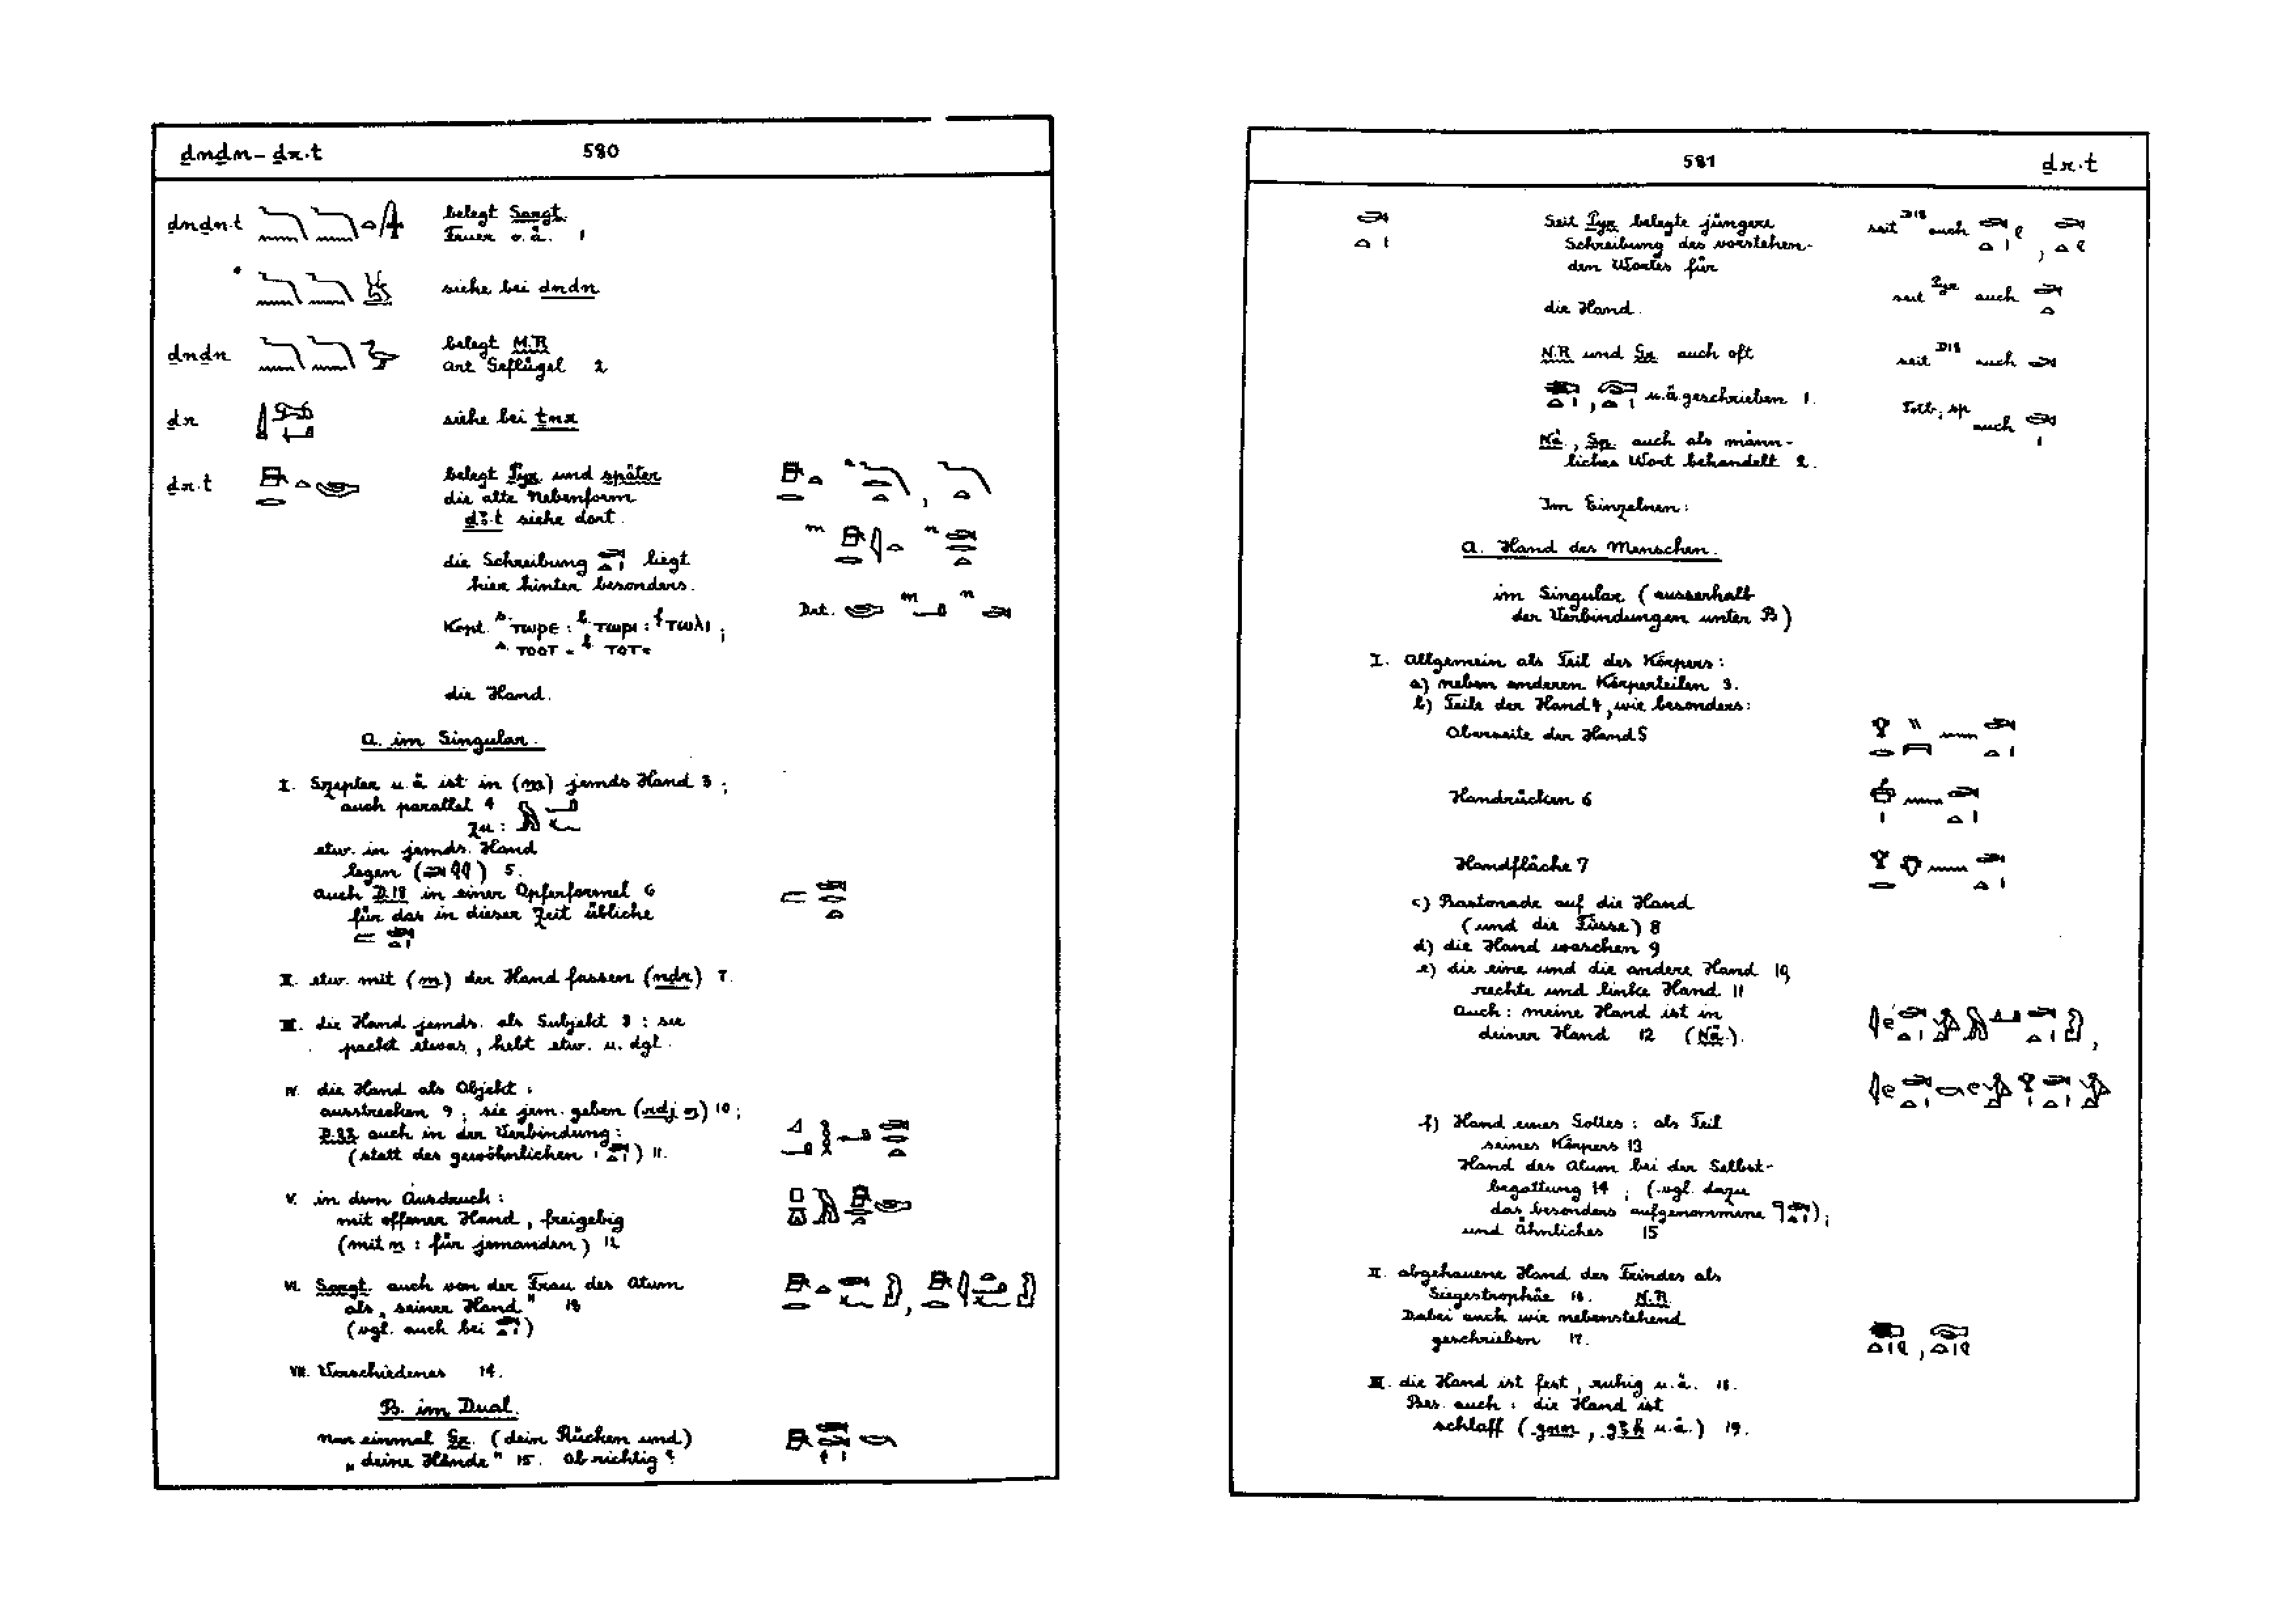 ḏnḏn - ḏr.t 580
ḏnḏn.t belegt Sargt.
Feuer o.ä. 1
siehe bei dndn
ḏnḏn belegt M.R
Art Geflügel 2
ḏr siehe bei ṯnr
ḏr.t belegt Pyr und später
die alte Nebenform
ḏꜣ.t siehe dort.
die Schreibung liegt
hier hinter besonders.
Kopt. s. ⲧⲱⲣⲉ : b. ⲧⲱⲣⲓ : f ⲧⲱⲗⲓ ;
s. ⲧⲟⲟⲧ⸗ b. ⲧⲟⲧ⸗
m n
Det. m n
die Hand.
A. im Singular.
I. Szepter u.ä ist in (m) jemds Hand 3 ;
auch parallel 4
zu :
etw. in jemds. Hand
legen ( ) 5.
auch D.18 in einer Opferformel 6
für das in dieser Zeit übliche
II. etw. mit (m) der Hand fassen (nḏr) 7.
III. die Hand jemds. als Subjekt 8 : sie
packt etwas, hebt etw. u. dgl.
IV. die Hand als Objekt :
ausstrecken 9 ; sie jem. geben (rdj n) 10 ;
D.22 auch in der Verbindung :
(statt des gewöhnlichen ) 11.
V. in dem Ausdruck :
mit offener Hand, freigebig
(mit n : für jemanden) 12
VI. Sargt. auch von der Frau des Atum
als „seiner Hand" 13
(vgl. auch bei )
VII. Verschiedenes 14.
B. im Dual.
nur einmal Gr. (dein Rücken und)
„deine Hände" 15. Ob richtig?
581 ḏr.t
Seit Pyr belegte jüngere
Schreibung des vorstehen-
den Wortes für
seit D18 auch ,
die Hand.
seit Pyr auch
N.R und Gr. auch oft
seit D18 auch
, u.ä geschrieben 1.
Totb, sp auch
Nä, Sp. auch als männ-
liches Wort behandelt 2.
Im Einzelnen :
A. Hand des Menschen.
im Singular (ausserhalb
der Verbindungen unter B)
I. Allgemein als Teil des Körpers :
a) neben anderen Körperteilen 3.
b) Teile der Hand 4, wie besonders :
Oberseite der Hand 5
Handrücken 6
Handfläche 7
c) Bastonade auf die Hand
(und die Füsse) 8
d) die Hand waschen 9
e) die eine und die andere Hand 10,
rechte und linke Hand 11
Auch : meine Hand ist in
deiner Hand 12 (Nä.).
f) Hand eines Gottes : als Teil
seines Körpers 13
Hand des Atum bei der Selbst-
begattung 14 ; (vgl. dazu
das besonders aufgenommene ) ;
und Ähnliches 15
II. abgehauene Hand des Feindes als
Siegestrophäe 16. N.R.
Dabei auch wie nebenstehend
geschrieben 17.
III. die Hand ist fest, ruhig u.ä. 18.
Bes. auch : die Hand ist
schlaff (gnn, gꜣḥ u.ä.) 19.